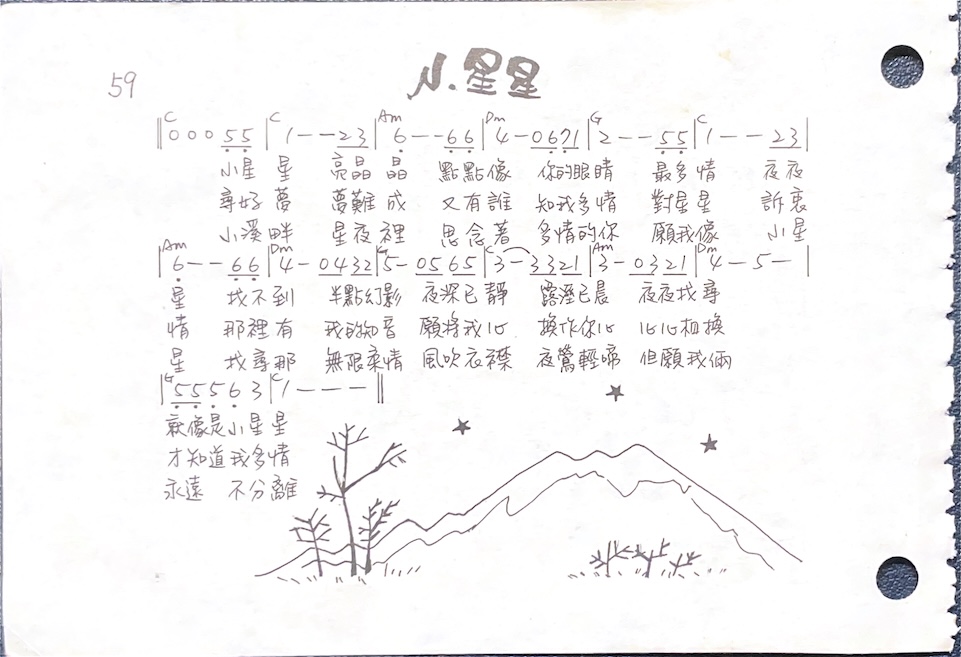 59
小星星
C C Am Dm G C
‖0 0 0 5 5|1 - - 2 3|6 - - 6 6|4 - 0 6 7 1|2 - - 5 5|1 - - 2 3|
小星 星 亮晶 晶 點點像 你的眼睛 最多情 夜夜
尋好夢 夢難成 又有誰 知我多情 對星星 訴衷
小溪畔 星夜裡 思念著 多情的你 願我像 小星
Am Dm G C Am Dm
|6 - - 6 6|4 - 0 4 3 2|5 - 0 5 6 5|3 - 3 3 2 1|3 - 0 3 2 1|4 - 5 -|
星 找不到 半點幻影 夜深已靜 露溼已晨 夜夜找尋
情 那裡有 我的知音 願將我心 換作你心 心心相換
星 找尋那 無限柔情 風吹衣襟 夜鶯輕啼 但願我倆
G C
|5 5 5 6 3|1 - - -‖
就像是小星星
才知道我多情
永遠 不分離